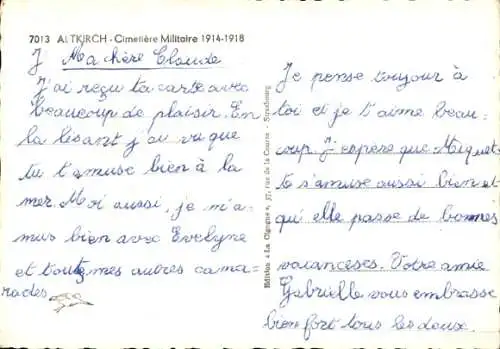 7013 ALTKIRCH - Cimetière Militaire 1914-1918
J Ma chère Claude
J'ai reçu ta carte avec
beaucoup de plaisir. En
la lisant j'ai vu que
tu t'amuse bien à la
mer. Moi aussi, je m'a-
mus bien avec Evelyne
et toutes mes autres cama-
rades.
Edition « La Cigogne », 37, rue de la Course - Strasbourg
Je pense toujour à
toi et je t'aime beau-
coup. J'espère que Miquet-
te s'amuse aussi bien et
qu'elle passe de bonnes
vacanceses. Votre amie
Gabrielle vous embrasse
bien fort tous les doux.